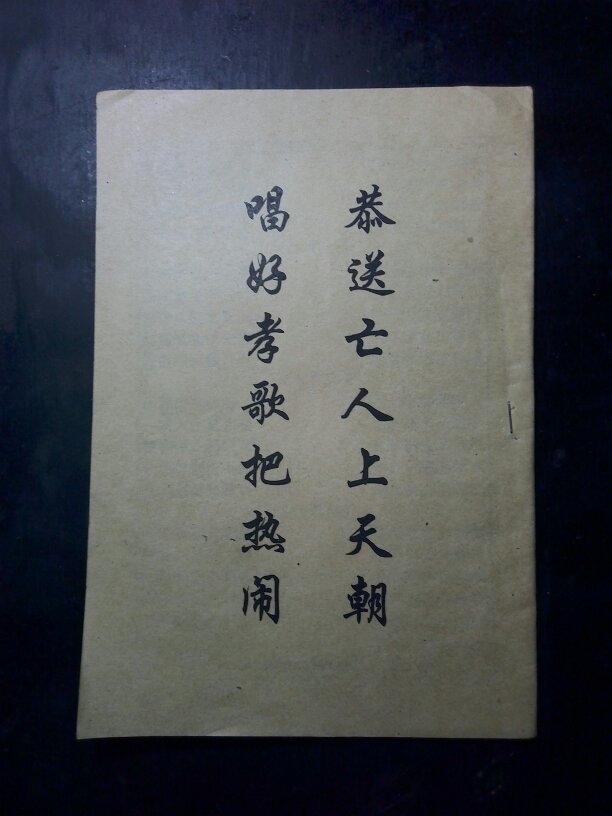 恭送亡人上天朝
唱好孝歌把热闹